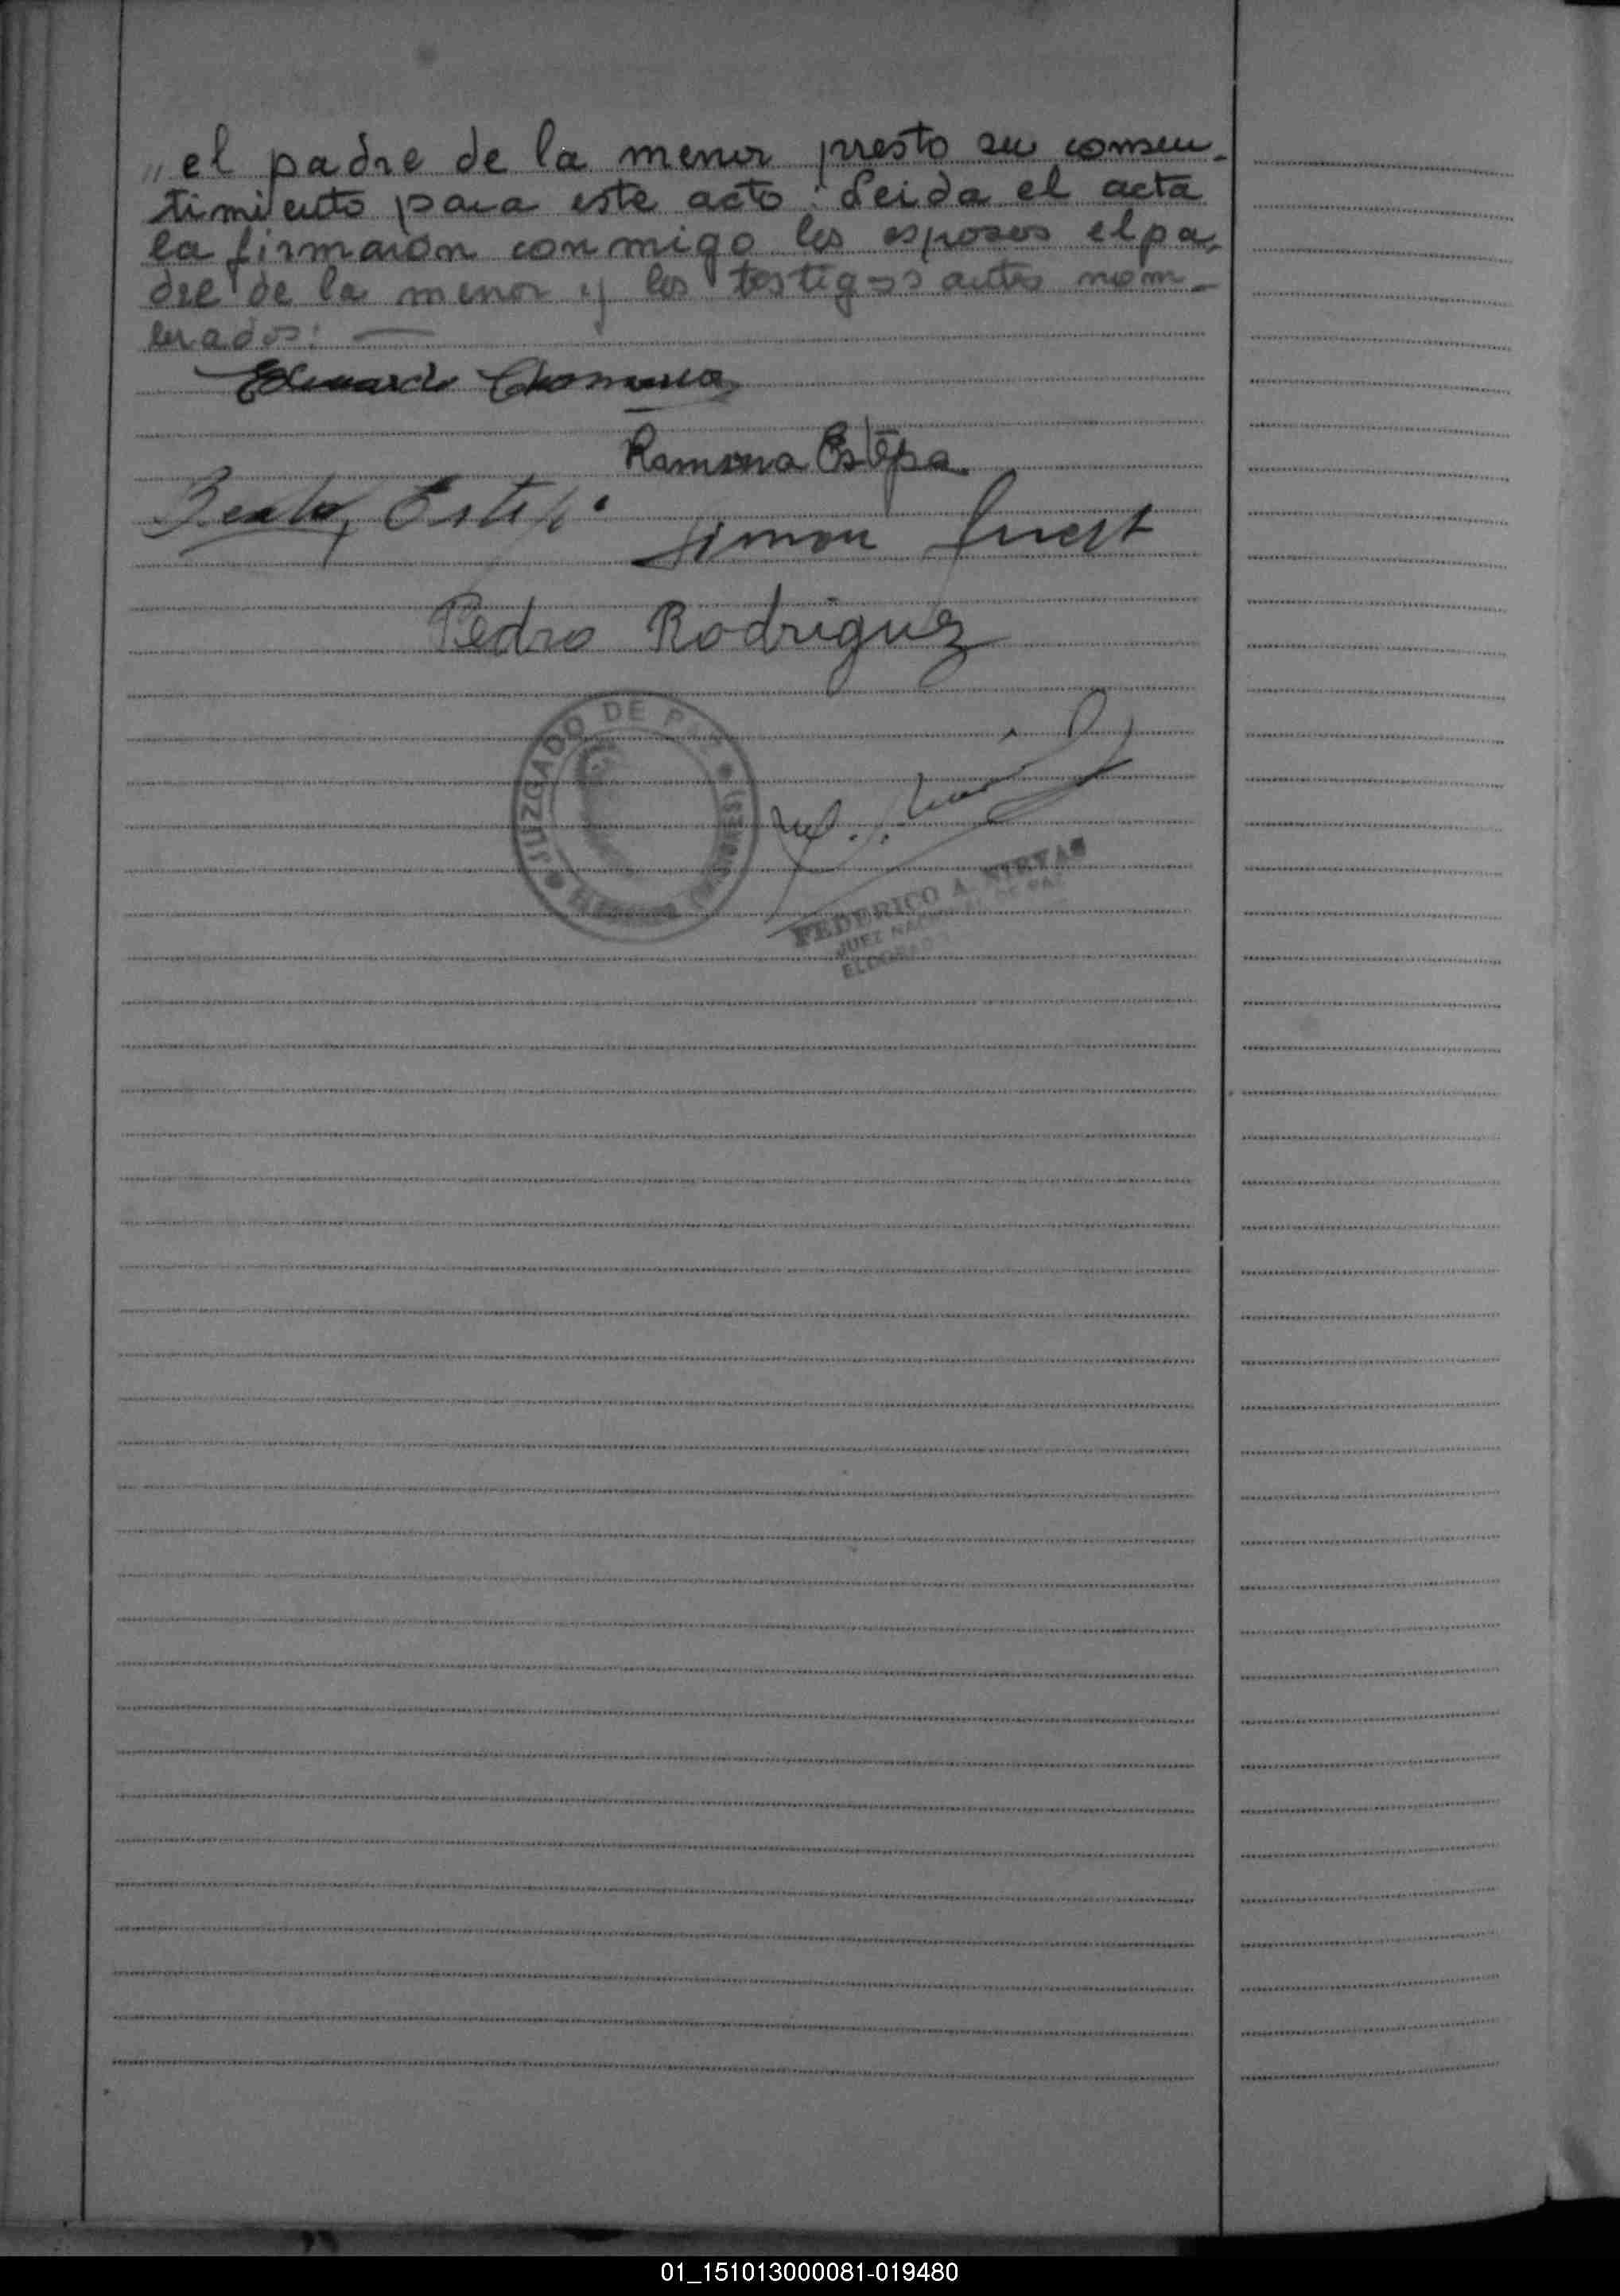 „ el padre de la menor presto su consen-
timiento para este acto: Leida el acta
la firmaron conmigo los esposos el pa-
dre de la menor y los testigos antes nom-
brados: —
Eduardo
Ramona Estepa
Estepa
Simon
Pedro Rodriguez
JUZGADO DE PAZ
FEDERICO A.
JUEZ NACIONAL DE PAZ
ELDORADO
01_151013000081-019480